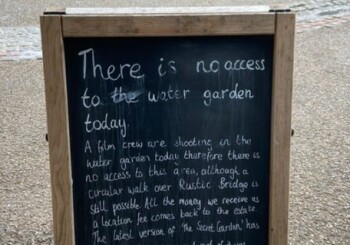 There is no access
to the water garden
today.
A film crew are shooting in the
water garden today therefore there is
no access to this area, although a
circular walk over Rustic Bridge is
still possible. All the money we receive as
a location fee comes back to the estate.
The latest version of 'The Secret Garden' has